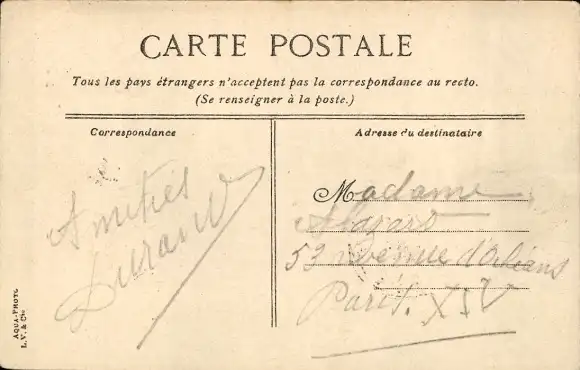 CARTE POSTALE
Tous les pays étrangers n'acceptent pas la correspondance au recto.
(Se renseigner à la poste.)
Correspondance
Adresse du destinataire
Amitiés
Durand
Madame
53 avenue d'Orléans
Paris. XIV
AQUA-PHOTO
L.V. & Cie